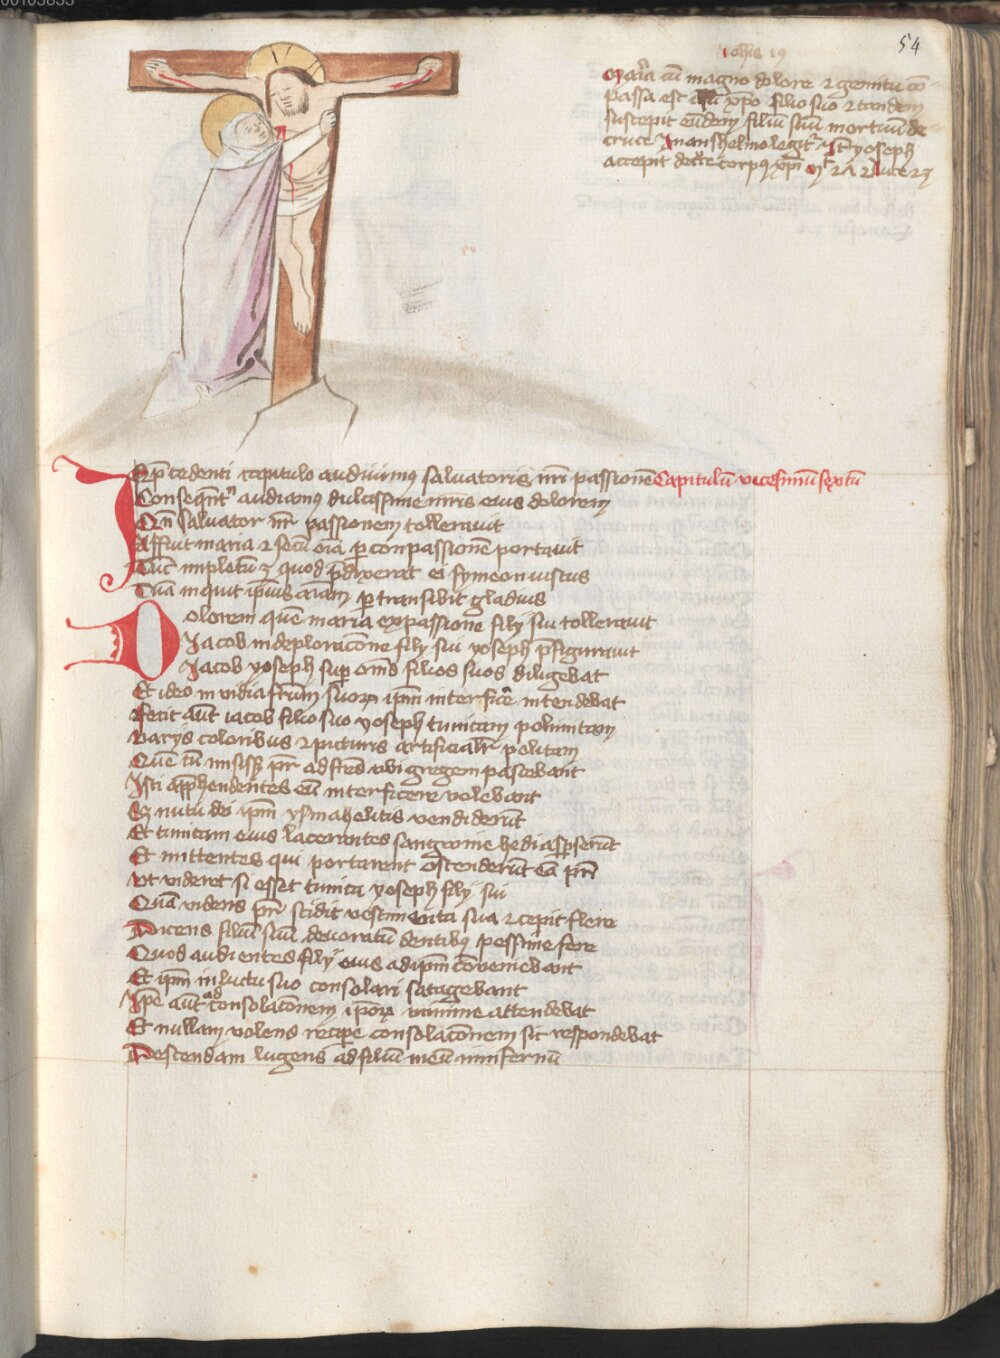 54
Joh̅is 19
Maria cu̅ magno dolore ⁊ gemitu co̅-
passa est ih̅u xp̅o filio suo ⁊ tandem
suscepit eunde̅ filiu̅ suu̅ mortuu̅ de
cruce Jn anshelmo legit᷑ yoseph
accepit corpus xp̅i
Jn p̅cedenti capitulo audiuimus saluatoris nr̅i passione̅ Capitulu̅ vicesimu̅ sextu̅
Consequent᷑ audiamus dulcissime mr̅is eius dolorem
Qn̅ saluator nr̅ passionem tollerauit
Affuit maria ⁊ secu̅ o̅ia p̲ conpassione̅ portauit
Tu̅c impletu̅ ꝫ quod p̅dixerat ei symeon iustus
Tua̅ inquit ip̅ius a̅i̅am p̲transibit gladius
Dolorem que̅ maria ex passione filij sui tollerauit
Jacob in deploracio̅ne filij sui yoseph p̅figurauit
Jacob yoseph sup̲ om̅s filios suos diligebat
Et ideo in vidia fr̅um suoꝝ ip̅m interfice̅ intendebat
Fecit aut̅ iacob filio suo yoseph tunicam polimitam
Varijs coloribus ⁊ picturis artificialit᷑ politam
Que̅ cu̅ misisset pr̅ ad fr̅es vbi gregem pascebant
Jsti app̅hendentes eu̅ interficere volebant
Sꝫ nutu dei ip̅m ysmahelitis vendideru̅t
Et tunicam eius lacerantes sangwine hedi asp̲seru̅t
Et mittentes qui portarent ostenderu̅t ea̅ pr̅i
Vt videret si esset tunica yoseph filij sui
Qua̅ videns pr̅ scidit vestimenta sua ⁊ cepit flere
Dicens filiu̅ suu̅ deuoratu̅ dentibꝰ pessime fere
Quod audientes filij eius ad ip̅m co̅ueniebant
Et ip̅m in luctu suo consolari satagebant
Jp̅e aut̅ ad consolac̅onem ip̅oꝝ minime attendebat
Et nullam volens recip̲e consolac̅onem sic respondebat
Descendam lugens ad filiu̅ meu̅ in infernu̅